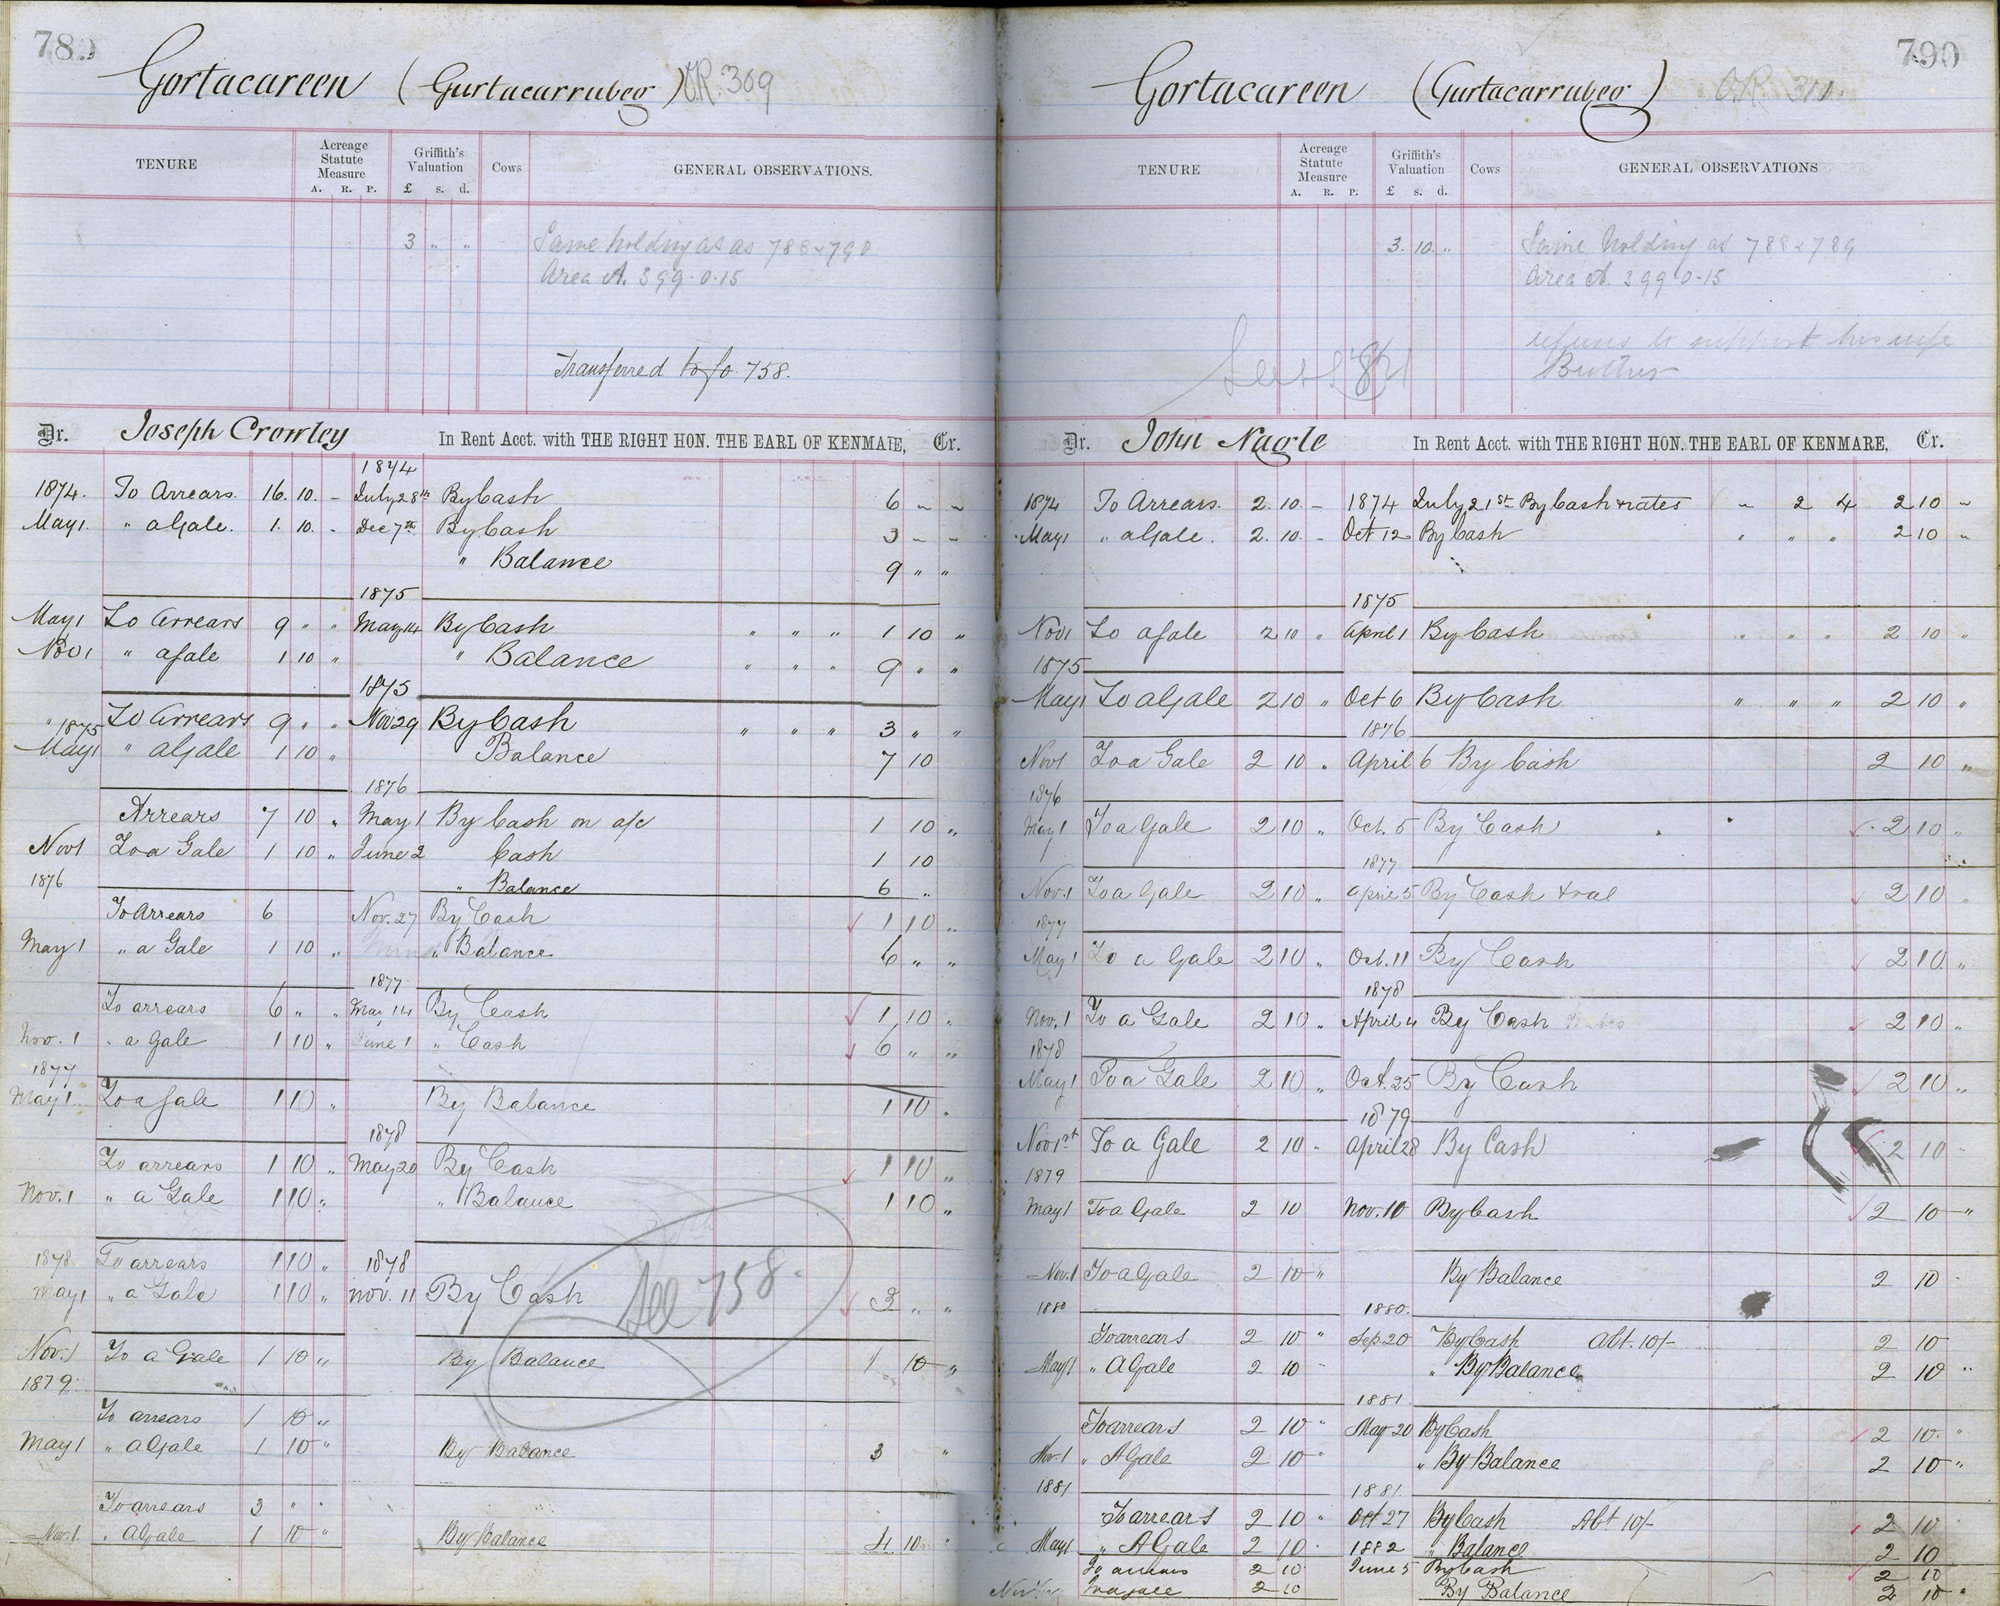 78
Gortacareen (Gurtacarrubeg) O.R. 309
TENURE
Acreage Statute Measure
A. R. P.
Griffith's Valuation
£ s. d.
Cows
GENERAL OBSERVATIONS.
3 " " Same holding as as 788 & 790
Area A. 399-0-15
Transferred to fo. 758.
Dr. Joseph Crowley In Rent Acct. with THE RIGHT HON. THE EARL OF KENMARE, Cr.
1874
1874. To Arrears. 16. 10. - July 28th By Cash 6 " "
May 1. " a Gale. 1. 10. - Dec 7th By Cash 3 " "
" Balance 9 " "
1875
May 1 To Arrears 9 " " May 14 By Cash " " " 1 10 "
Nov 1 " a Gale 1 10 " " Balance " " " 9 " "
1875
" To Arrears 9 " " Nov 29 By Cash " " " 3 " "
1875
May 1 " a Gale 1 10 " Balance 7 10
1876
Arrears 7 10 " May 1 By Cash on a/c 1 10 "
Nov 1 To a Gale 1 10 " June 2 Cash 1 10
1876 " Balance 6 "
To Arrears 6 Nov. 27 By Cash 1 10 "
May 1 " a Gale 1 10 " " Balance 6 " "
1877
To arrears 6 " " May 14 By Cash 1 10 "
Nov. 1 " a Gale 1 10 " June 1 " Cash 6 " "
1877
May 1 To a Gale 1 10 " By Balance 1 10 "
1878
To arrears 1 10 " May 20 By Cash 1 10 "
Nov. 1 " a Gale 1 10 " " Balance 1 10 "
1878 To arrears 1 10 " 1878
May 1 " a Gale 1 10 " Nov. 11 By Cash 3 " "
See 758
Nov. 1 To a Gale 1 10 " By Balance 1 10 "
1879
To arrears 1 10 "
May 1 " a Gale 1 10 " By Balance 3 "
To arrears 3 " "
Nov. 1 " a Gale 1 10 " By Balance 4 10 "
790
Gortacareen (Gurtacarrubeg) O.R. 311
TENURE
Acreage Statute Measure
A. R. P.
Griffith's Valuation
£ s. d.
Cows
GENERAL OBSERVATIONS
3. 10. " Same holding as 788 & 789
Area A. 399 0-15
refuses to support his wife
Brother
Dr. John Nagle In Rent Acct. with THE RIGHT HON. THE EARL OF KENMARE, Cr.
1874 To Arrears. 2. 10. - 1874 July 21st By Cash & rates " 2 4 2 10 "
May 1 " a Gale. 2. 10. - Oct 12 By Cash " " " 2 10 "
1875
Nov 1 To a Gale 2 10 " April 1 By Cash " " " 2 10 "
1875
May 1 To a Gale 2 10 " Oct 6 By Cash " " " 2 10 "
1876
Nov 1 To a Gale 2 10 " April 6 By Cash 2 10 "
1876
May 1 To a Gale 2 10 " Oct. 5 By Cash 2 10 "
1877
Nov. 1 To a Gale 2 10 " April 5 By Cash 2 10 "
1877
May 1 To a Gale 2 10 " Oct. 11 By Cash 2 10 "
1878
Nov. 1 To a Gale 2 10 " April 4 By Cash 2 10 "
1878
May 1 To a Gale 2 10 " Oct. 25 By Cash 2 10 "
1879
Nov 1st To a Gale 2 10 " April 28 By Cash 2 10 "
1879
May 1 To a Gale 2 10 Nov. 10 By Cash 2 10 "
Nov. 1 To a Gale 2 10 " By Balance 2 10
1880 1880.
To arrears 2 10 " Sep 20 By Cash Abt. 10/- 2 10
May 1 " A Gale 2 10 " By Balance 2 10 "
1881.
To arrears 2 10 " May 20 By Cash 2 10 "
Nov. 1 " A Gale 2 10 " " By Balance 2 10 "
1881 1881.
To arrears 2 10 " Oct 27 By Cash Abt 10/- 2 10
May 1 " A Gale 2 10 1882 " Balance 2 10
To arrears 2 10 June 5 By Cash 2 10
Nov 1 To a Gale 2 10 By Balance 2 10 "